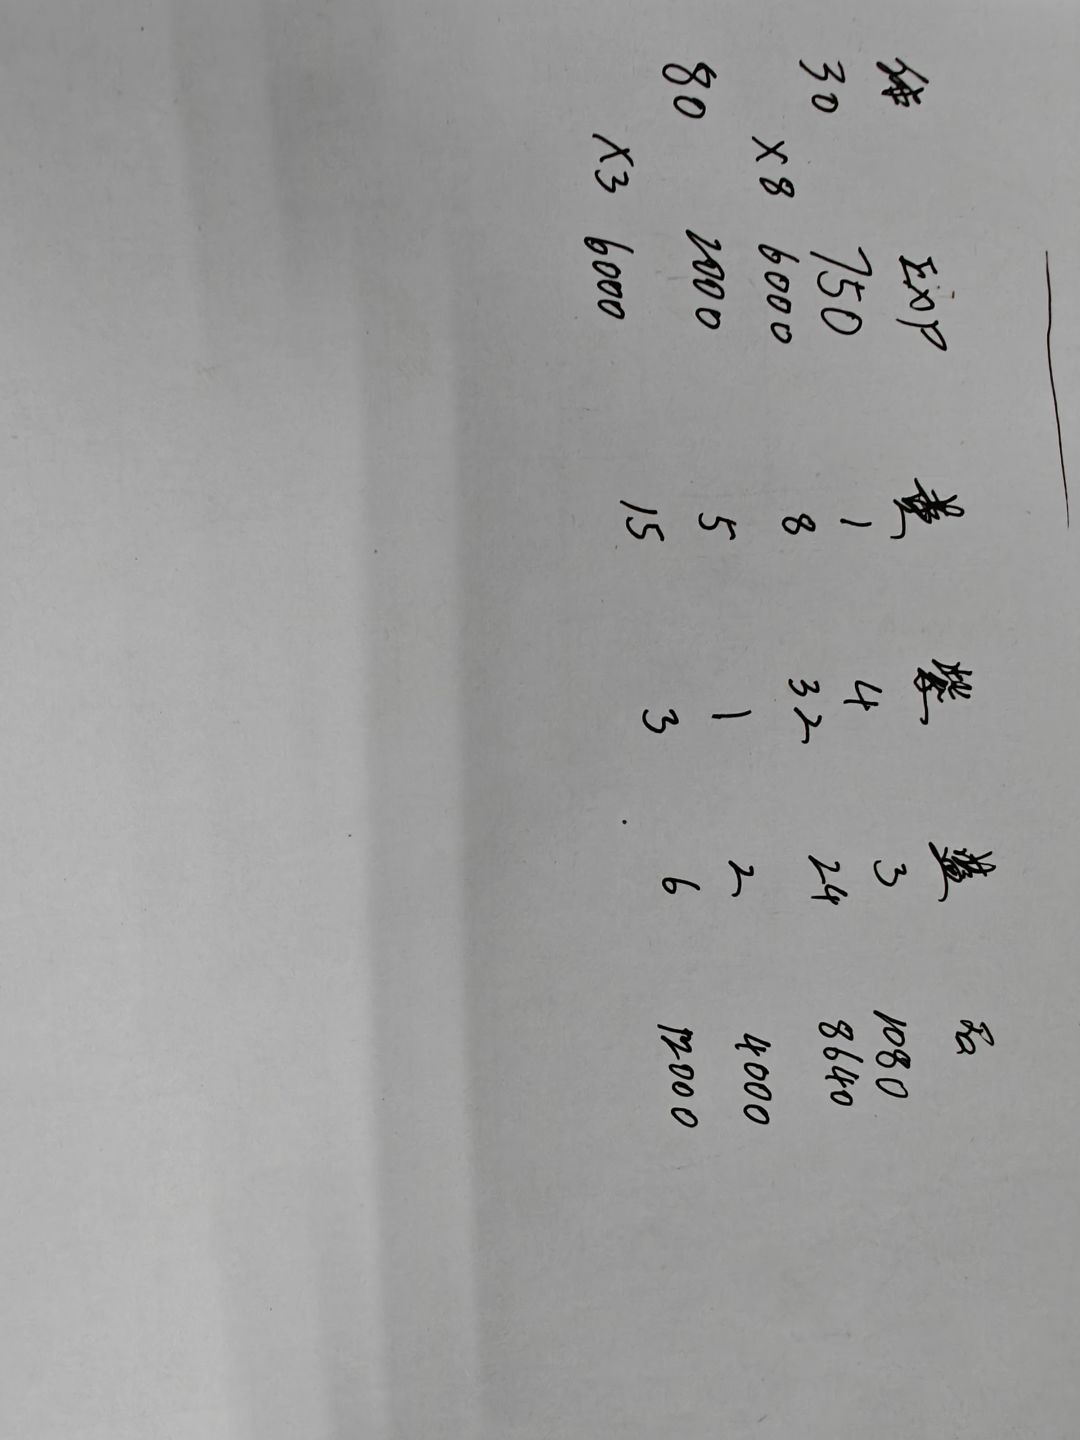 体 Exp 蓝
30 750 1 4 3 1080
×8 6000 8 32 24 8640
80 2000 5 1 2 4000
×3 6000 15 3 6 12000